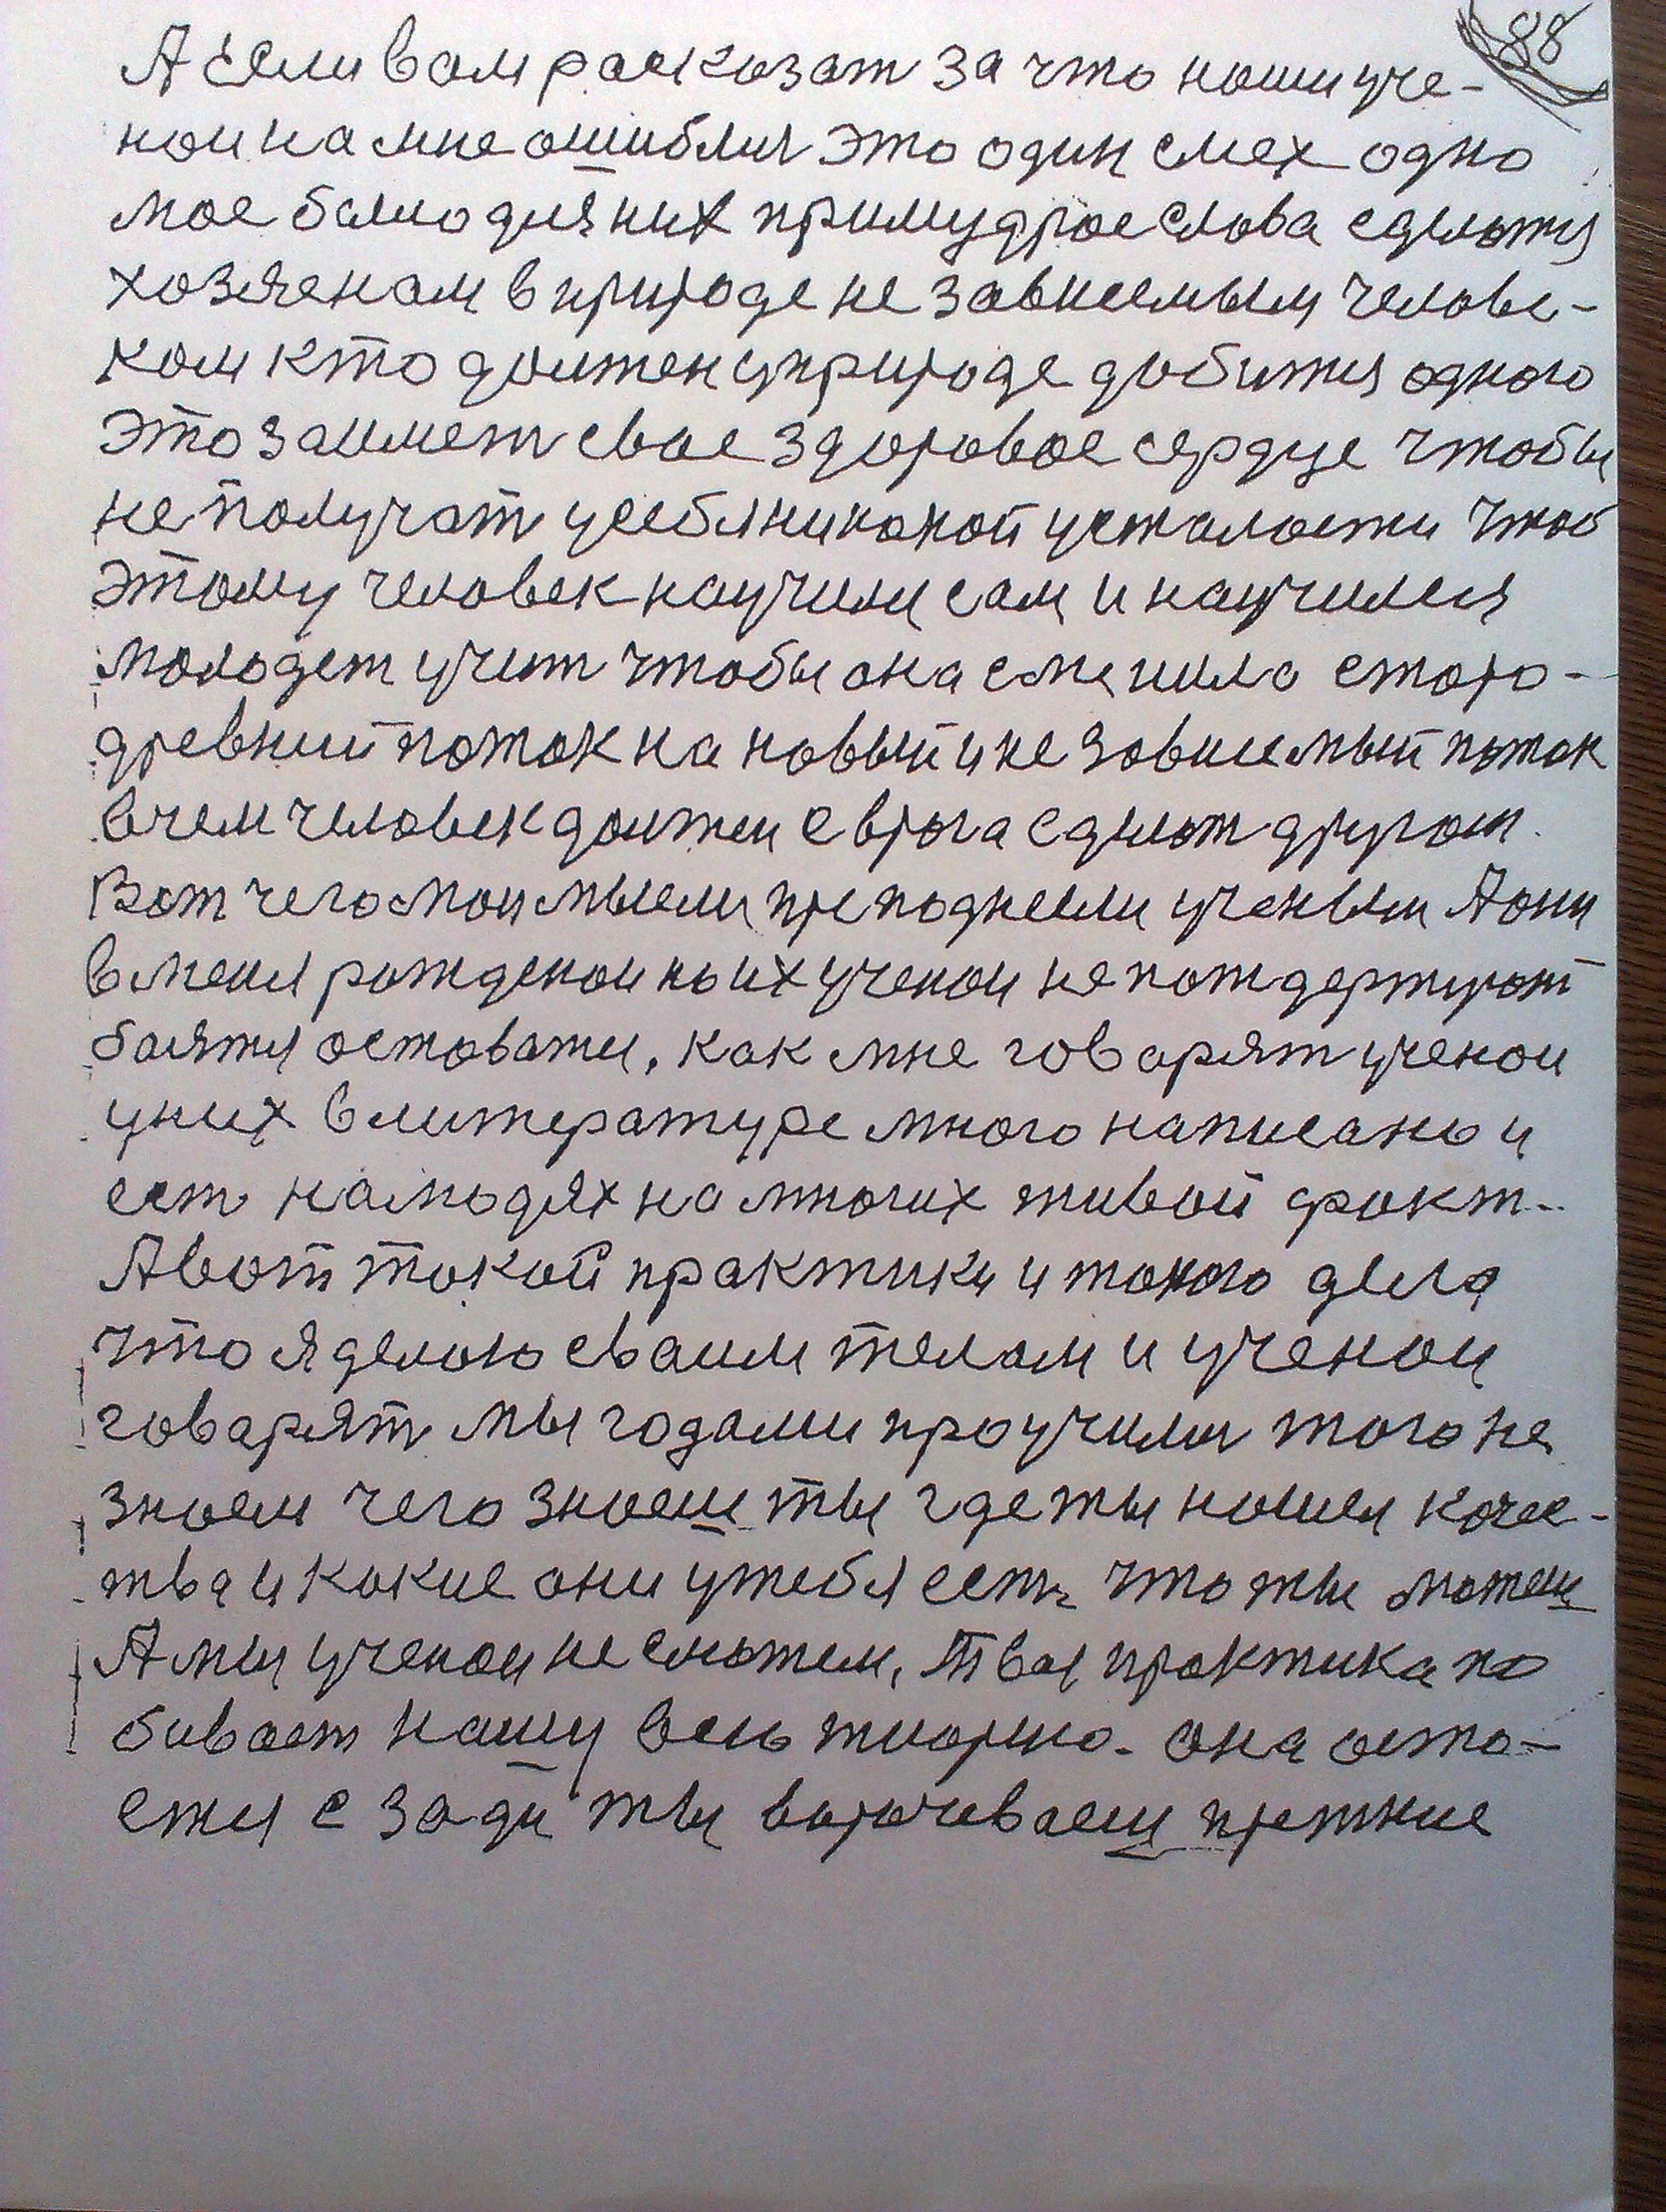 88
А Если вам расказат за что наши уче-
нои на мне ошиблис это один смех одно
мое было для них примудрое слова сделатся
хозяенам в природе не зависемым челове-
ком кто должен у природе добится одного
это заимет свое здоровое сердце чтобы
не получат у себя никакой усталости чтоб
этому человек научили сам и научился
молодеж учит чтобы она сменила старо-
древний поток на новый и не зависемый поток
в чем человек должен с врага сделат другом.
Вот чего мои мысли преподнесли ученым А они
в меня рожденои но их ученои не пождержуют
боятся остоватся. как мне говарят ученои
у них в литературе много написано и
ест на людях на многих живой факт..
А вот такой практики и такого дела
что я делаю сваим телам и ученои
говарят мы годами проучилис того не
знаем чего знаеш ты где ты нашел качес-
тва и какие они у тебя есть что ты можеш
А мы ученои не сможем, Твая практика по
бивает нашу всю тиорию. она оста-
ется с зади ты ворочиваеш прежние